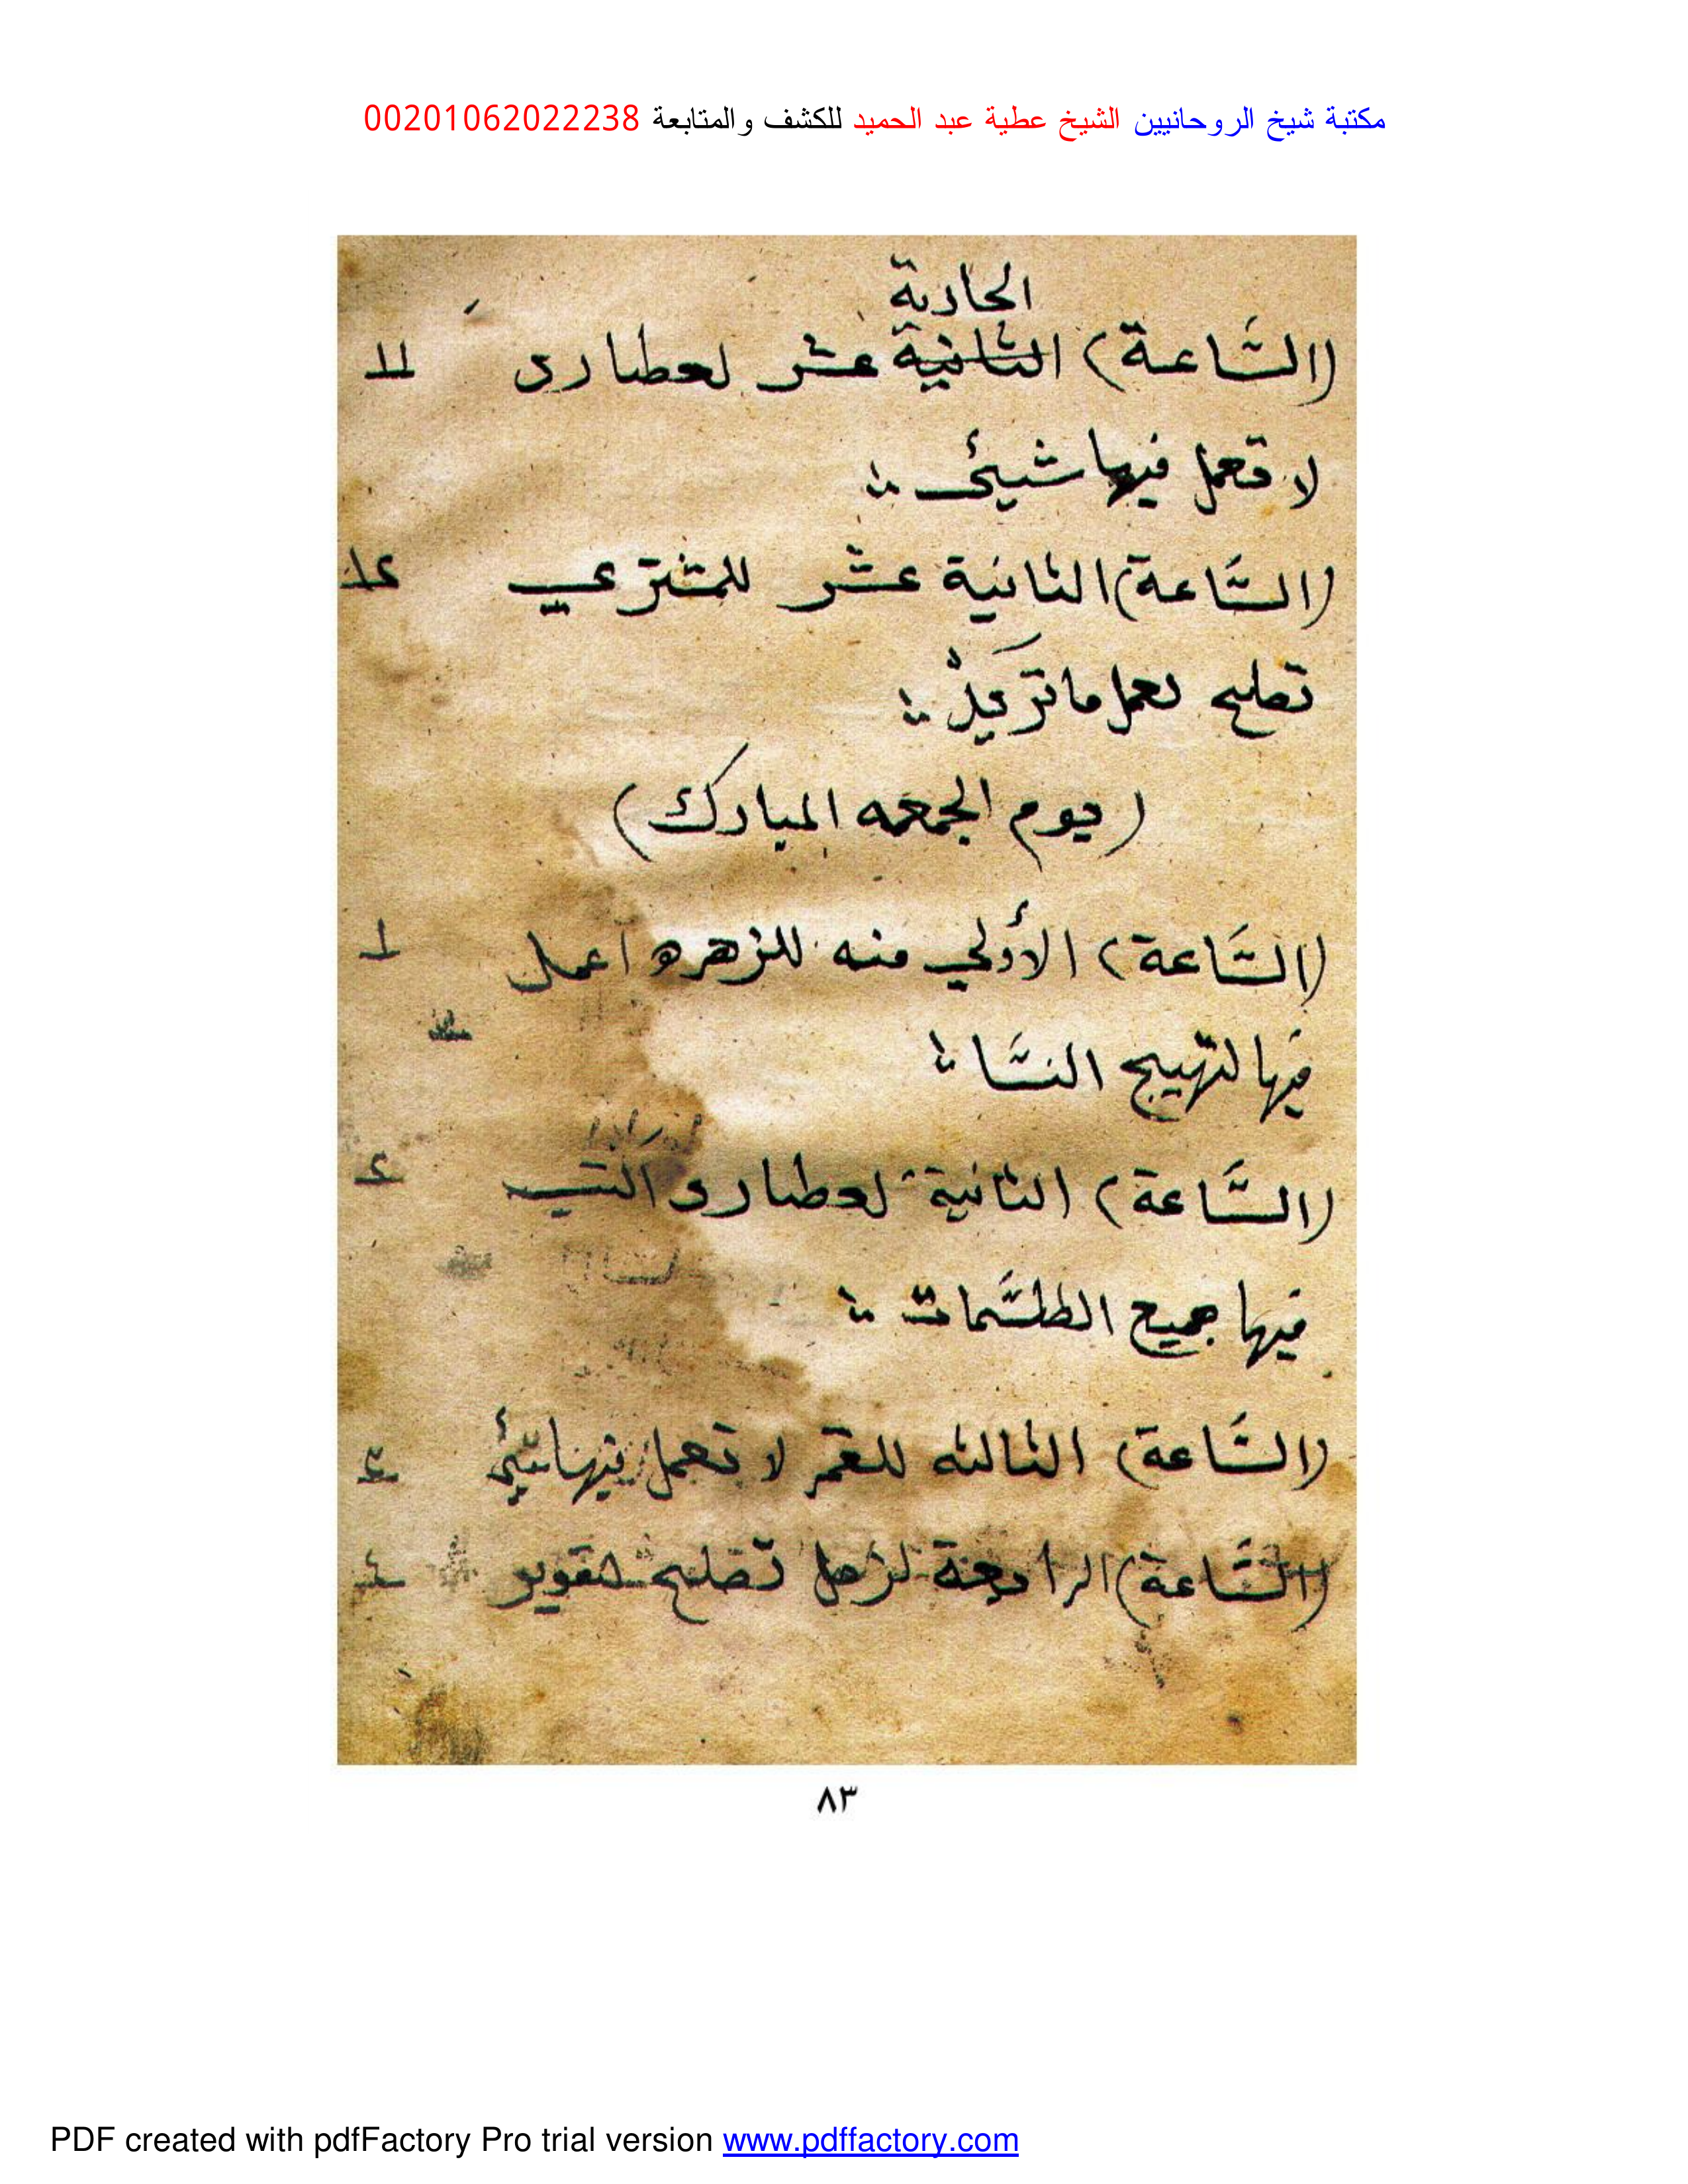 مكتبة شيخ الروحانيين الشيخ عطية عبد الحميد للكشف والمتابعة 00201062022238
الحادية
(الساعة) الثانية عشر لعطارد ١١
لا تعمل فيها شيئ
(الساعة) الثانية عشر للمشتري ١٢
تصلح لعمل ما تريد
(يوم الجمعه المبارك)
(الساعة) الأولي منه للزهره اعمل ١
فيها لتهييج النسا
(الساعة) الثانية لعطارد اكتب ٢
فيها جميع الطلسمات
(الساعة) الثالثه للقمر لا تعمل فيها شيئ ٣
(الساعة) الرابعة لزحل تصلح ٤
٨٣
PDF created with pdfFactory Pro trial version www.pdffactory.com